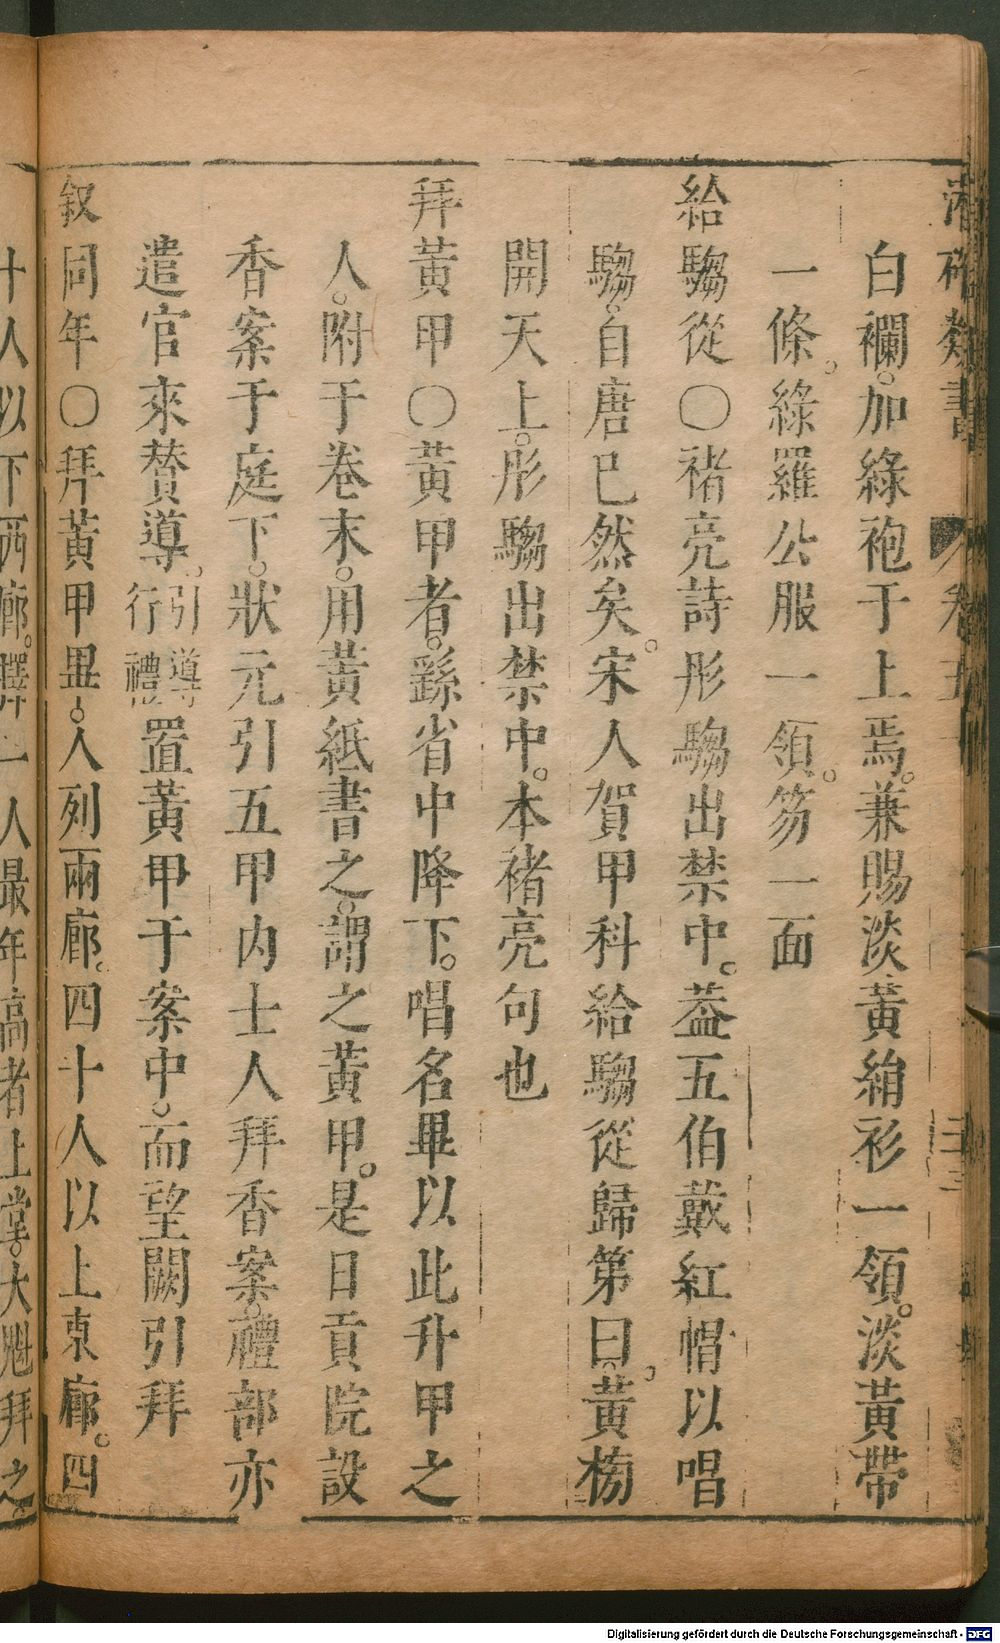 白襴。加綠袍于上焉。兼賜淡黃絹衫一領。淡黃帶
一條。綠羅公服一領。笏一面
給騶從〇褚亮詩彤騶出禁中。葢五伯戴紅帽以唱
騶。自唐已然矣。宋人賀甲科給騶從歸第曰。黃榜
開天上。彤騶出禁中。本褚亮句也
拜黃甲〇黃甲者。繇省中降下。唱名畢以此升甲之
人。附于卷末。用黃紙書之。謂之黃甲。是日貢院設
香案于庭下。狀元引五甲内士人拜香案。禮部亦
遣官來贊導。引導行禮置黃甲于案中。而望闕引拜
叙同年〇拜黃甲畢。人列兩廊。四十人以上東廊。四
十人以下西廊。擇一人最年高者上堂。大魁拜之。
Digitalisierung gefördert durch die Deutsche Forschungsgemeinschaft - DFG